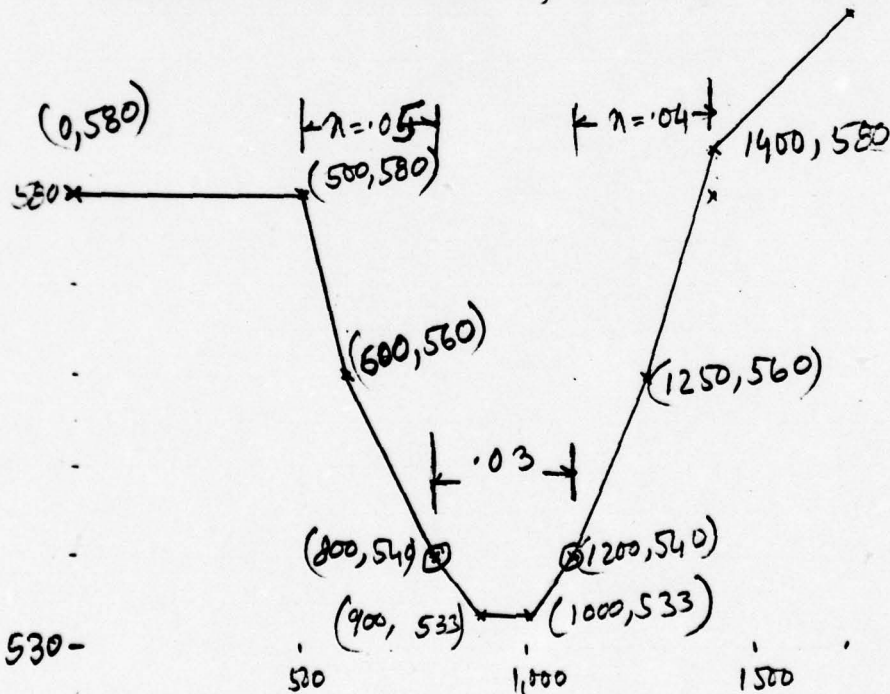 n=.05
n=.04
(0,580)
1400, 580
580
(500,580)
(600,560)
(1250,560)
.03
(800,540)
(1200,540)
(900, 533)
(1000,533)
530
500
1,000
1500